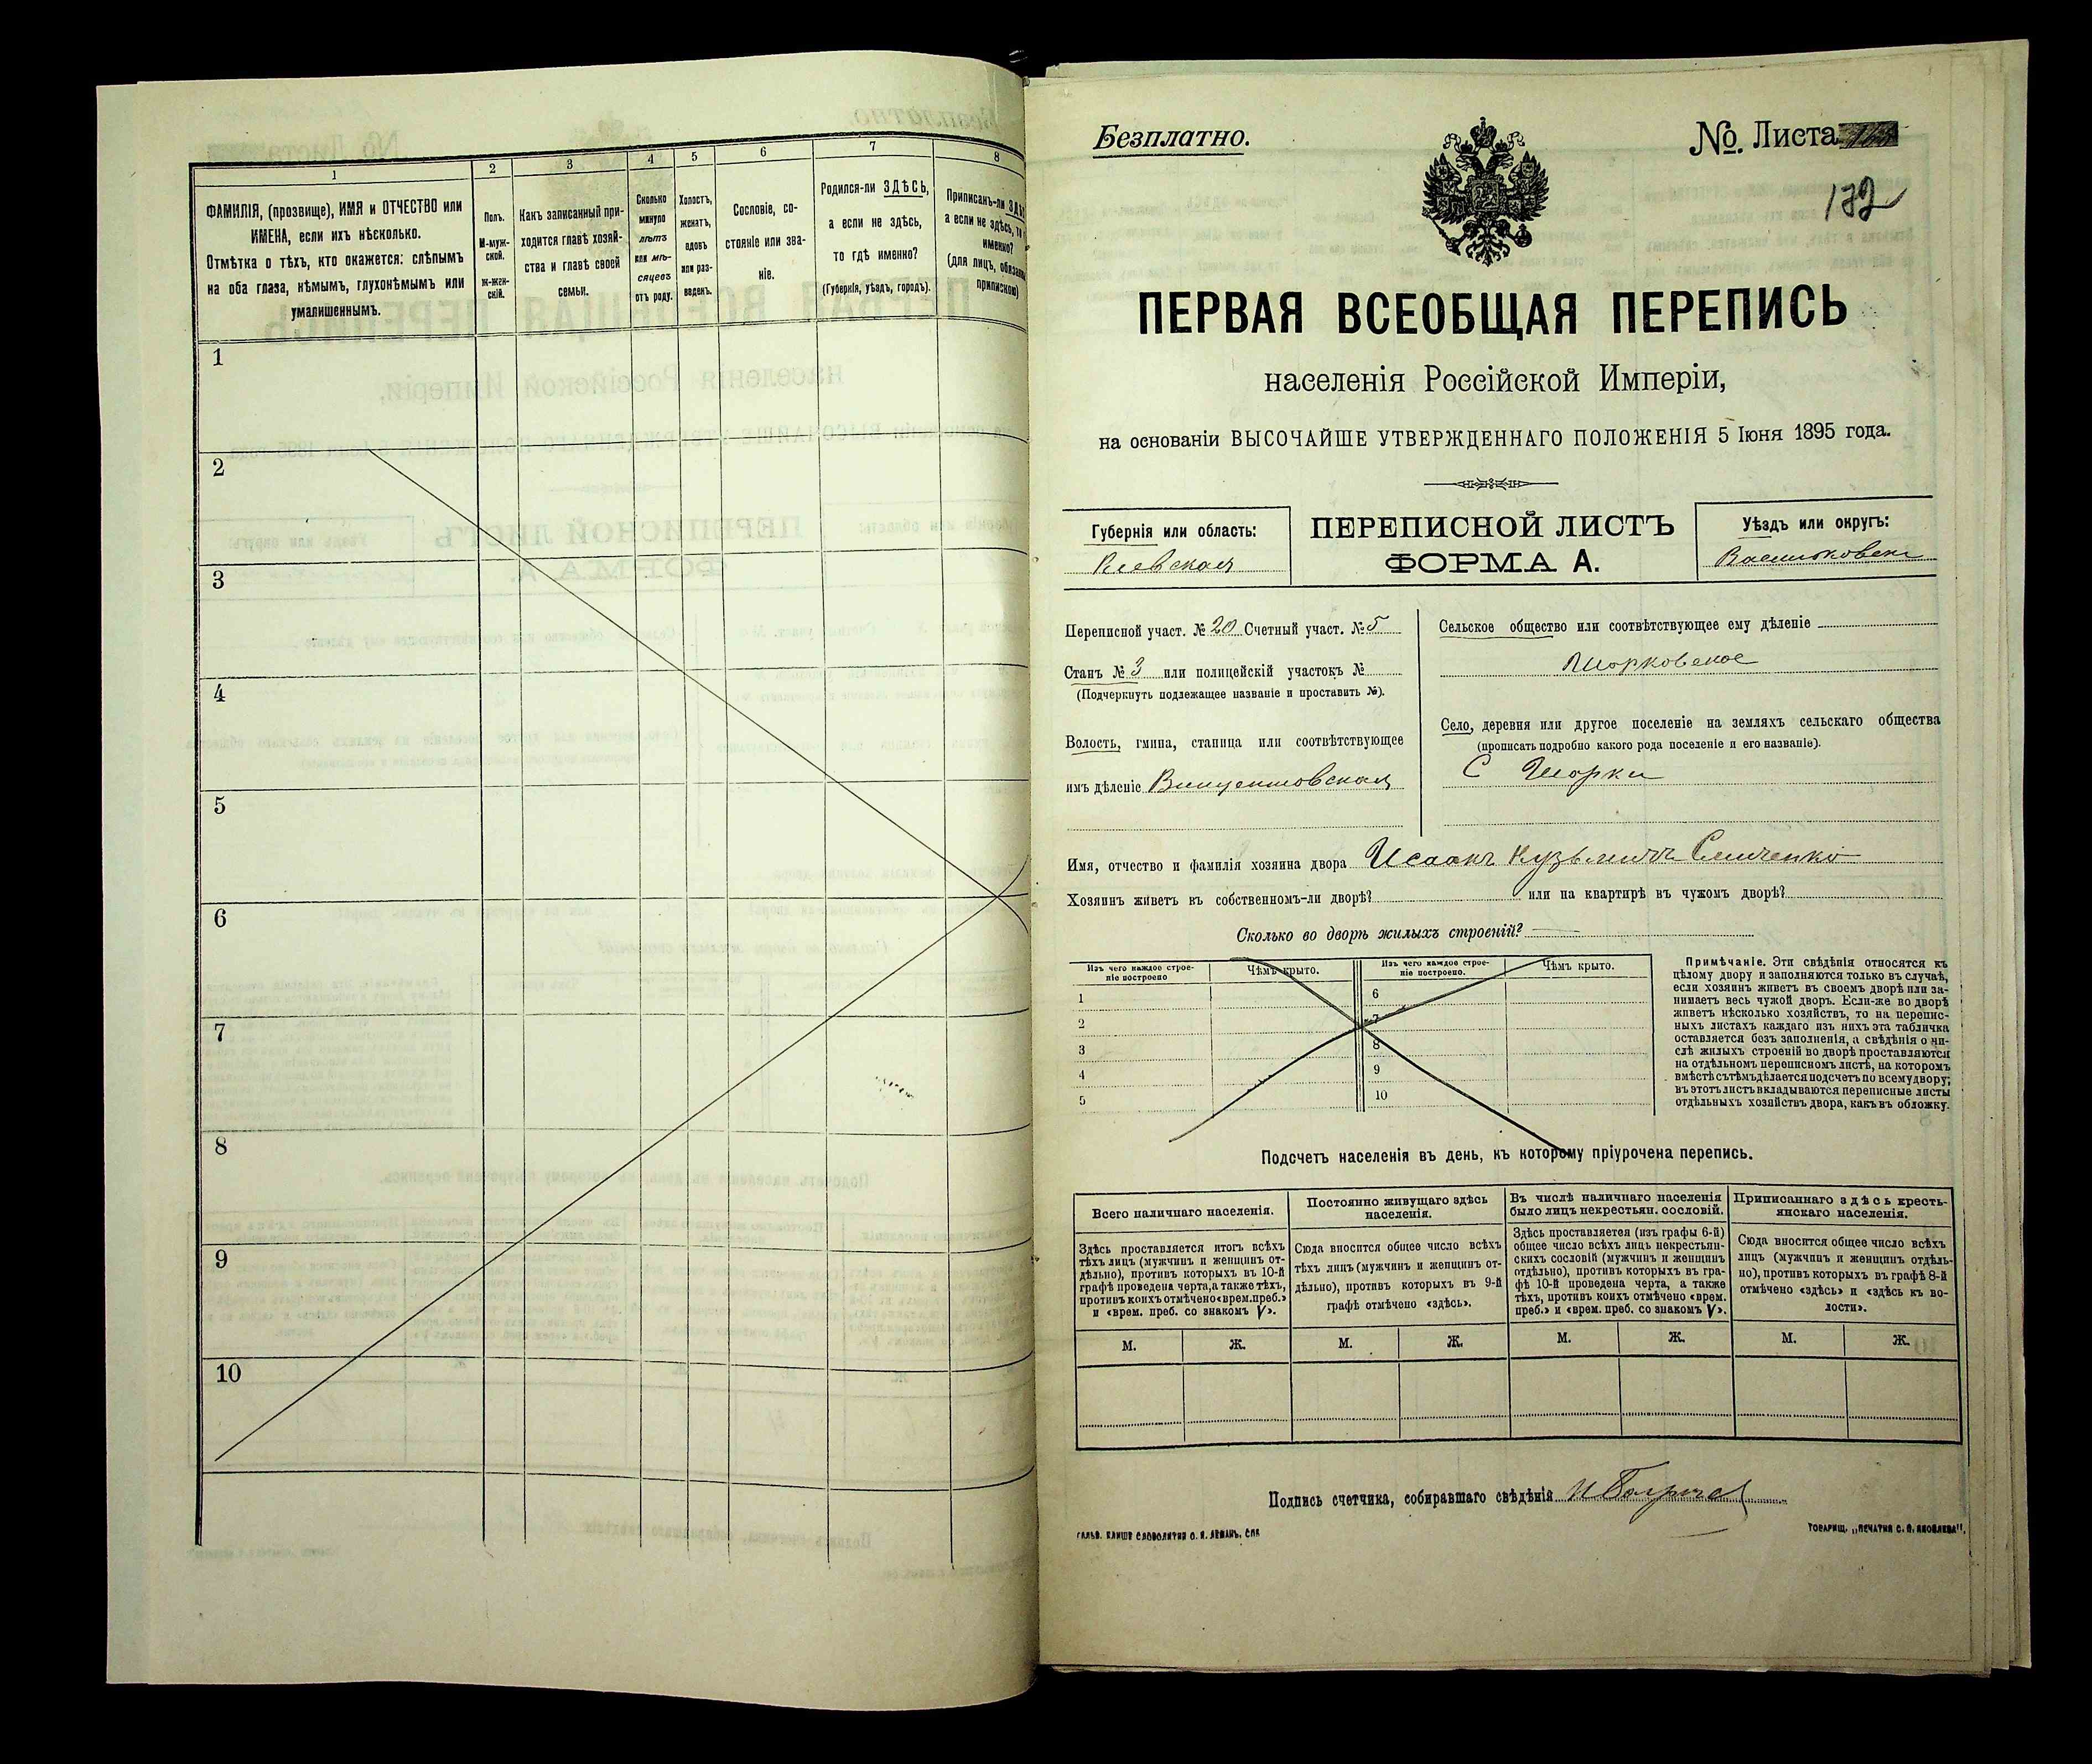 1
2
3
4
5
6
7
8
ФАМИЛІЯ, (прозвище), ИМЯ и ОТЧЕСТВО или
ИМЕНА, если ихъ нѣсколько.
Отмѣтка о тѣхъ, кто окажется: слѣпымъ
на оба глаза, нѣмымъ, глухонѣмымъ или
умалишеннымъ.
Полъ.
М-муж-
ской.
Ж-жен-
скій.
Какъ записанный при-
ходится главѣ хозяй-
ства и главѣ своей
семьи.
Сколько
минуло
лѣтъ
или мѣ-
сяцевъ
отъ роду.
Холостъ,
женатъ,
вдовъ
или раз-
веденъ.
Сословіе, со-
стояніе или зва-
ніе.
Родился-ли ЗДѢСЬ,
а если не здѣсь,
то гдѣ именно?
(Губернія, уѣздъ, городъ).
Приписанъ-ли
а если не здѣсь, то
именно?
(для лицъ,
припискою)
1
2
3
4
5
6
7
8
9
10
Безплатно.
№. Листа
132
ПЕРВАЯ ВСЕОБЩАЯ ПЕРЕПИСЬ
населенія Россійской Имперіи,
на основаніи ВЫСОЧАЙШЕ УТВЕРЖДЕННАГО ПОЛОЖЕНІЯ 5 Іюня 1895 года.
Губернія или область:
Кіевская
ПЕРЕПИСНОЙ ЛИСТЪ
ФОРМА А.
Уѣздъ или округъ:
Васильковск
Переписной участ. № 20 Счетный участ. № 5
Станъ № 3 или полицейскій участокъ №
(Подчеркнуть подлежащее названіе и проставить №).
Волость, гмина, станица или соотвѣтствующее
имъ дѣленіе Винцентовская
Сельское общество или соотвѣтствующее ему дѣленіе
Шорковское
Село, деревня или другое поселеніе на земляхъ сельскаго общества
(прописать подробно какого рода поселеніе и его названіе).
С Шорки
Имя, отчество и фамилія хозяина двора Исаакъ Кузьмичъ
Хозяинъ живетъ въ собственномъ-ли дворѣ? или на квартирѣ въ чужомъ дворѣ?
Сколько во дворѣ жилыхъ строеній?
Изъ чего каждое строе-
ніе построено
Чѣмъ крыто.
Изъ чего каждое строе-
ніе построено.
Чѣмъ крыто.
1
2
3
4
5
6
7
8
9
10
Примѣчаніе. Эти свѣдѣнія относятся къ
цѣлому двору и заполняются только въ случаѣ,
если хозяинъ живетъ въ своемъ дворѣ или за-
нимаетъ весь чужой дворъ. Если-же во дворѣ
живетъ нѣсколько хозяйствъ, то на перепис-
ныхъ листахъ каждаго изъ нихъ эта табличка
оставляется безъ заполненія, а свѣдѣнія о чи-
слѣ жилыхъ строеній во дворѣ проставляются
на отдѣльномъ переписномъ листѣ, на которомъ
вмѣстѣ съ тѣмъ дѣлается подсчетъ по всему двору;
въ этотъ листъ вкладываются переписные листы
отдѣльныхъ хозяйствъ двора, какъ въ обложку.
Подсчетъ населенія въ день, къ которому пріурочена перепись.
Всего наличнаго населенія.
Постоянно живущаго здѣсь
населенія.
Въ числѣ наличнаго населенія
было лицъ некрестьян. сословій.
Приписаннаго здѣсь кресть-
янскаго населенія.
Здѣсь проставляется итогъ всѣхъ
тѣхъ лицъ (мужчинъ и женщинъ от-
дѣльно), противъ которыхъ въ 10-й
графѣ проведена черта, а также тѣхъ,
противъ коихъ отмѣчено «врем. преб.»
и «врем. преб. со знакомъ V».
Сюда вносится общее число всѣхъ
тѣхъ лицъ (мужчинъ и женщинъ от-
дѣльно), противъ которыхъ въ 9-й
графѣ отмѣчено «здѣсь».
Здѣсь проставляется (изъ графы 6-й)
общее число всѣхъ лицъ некрестьян-
скихъ сословій (мужчинъ и женщинъ
отдѣльно), противъ которыхъ въ гра-
фѣ 10-й проведена черта, а также
тѣхъ, противъ коихъ отмѣчено «врем.
преб.» и «врем. преб. со знакомъ V».
Сюда вносится общее число всѣхъ
лицъ (мужчинъ и женщинъ отдѣль-
но), противъ которыхъ въ графѣ 8-й
отмѣчено «здѣсь» и «здѣсь къ во-
лости».
М.
Ж.
М.
Ж.
М.
Ж.
М.
Ж.
Подпись счетчика, собиравшаго свѣдѣнія
ГАЛЬВ. КЛИШЕ СЛОВОЛИТНИ О. И. ЛЕМАНЪ, СПБ
ТОВАРИЩ. „ПЕЧАТНЯ С. П. ЯКОВЛЕВА“.